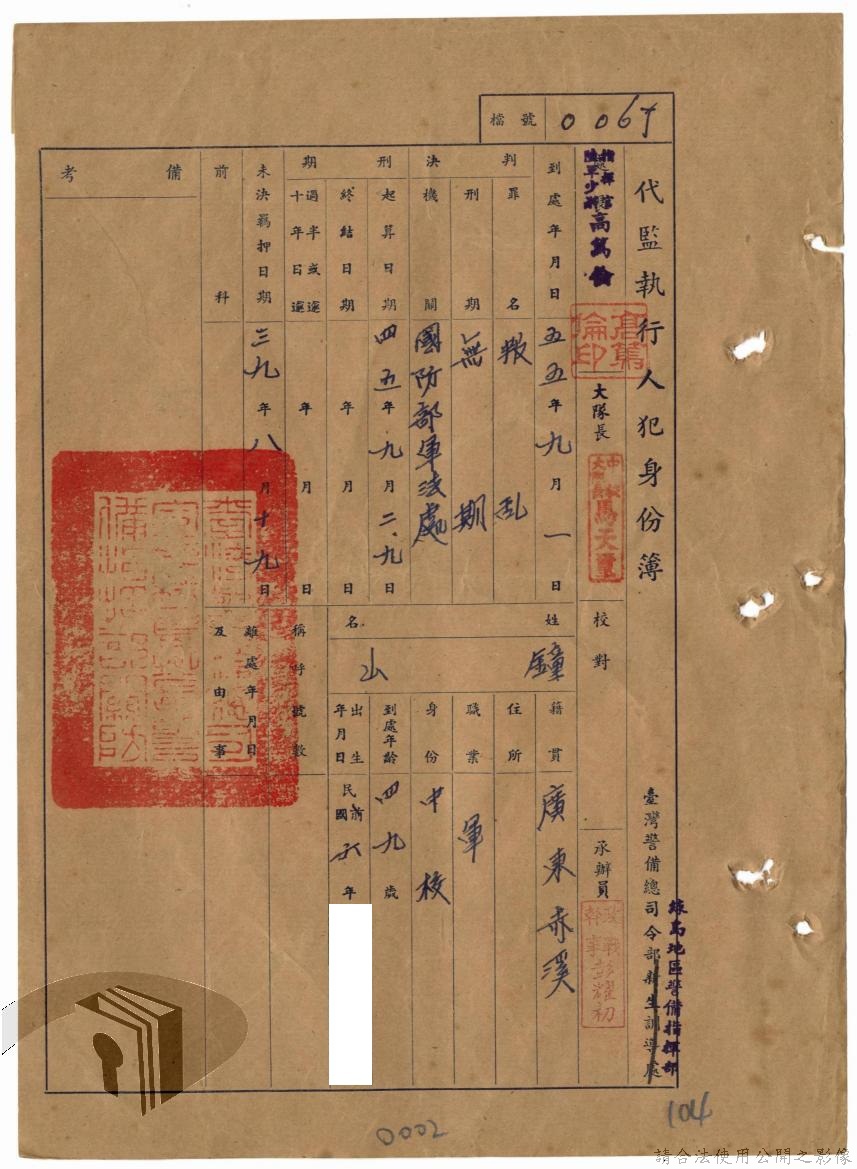 檔號 0067
代監執行人犯身份簿
臺灣警備總司令部新生訓導處
綠島地區警備指揮部
指揮官
陸軍少將 高篤倫
高篤倫印
大隊長
馬天
校對
承辦員
幹事彭耀初
到處年月日 五五年九月一日
判決
罪名 叛乱
刑期 無期
機關 國防部軍法處
刑期
起算日期 四五年九月二.九日
終結日期 年月日
過半或逾十年日 年月日
未決羈押日期 三九年八月十九日
前科
備考
姓名 鐘山
籍貫 廣東赤溪
住所
職業 軍
身份 中校
到處年齡 四九歲
出生年月日 民國前六年
稱呼號數
離處年月日及事由
0002
104
請合法使用公開之影像